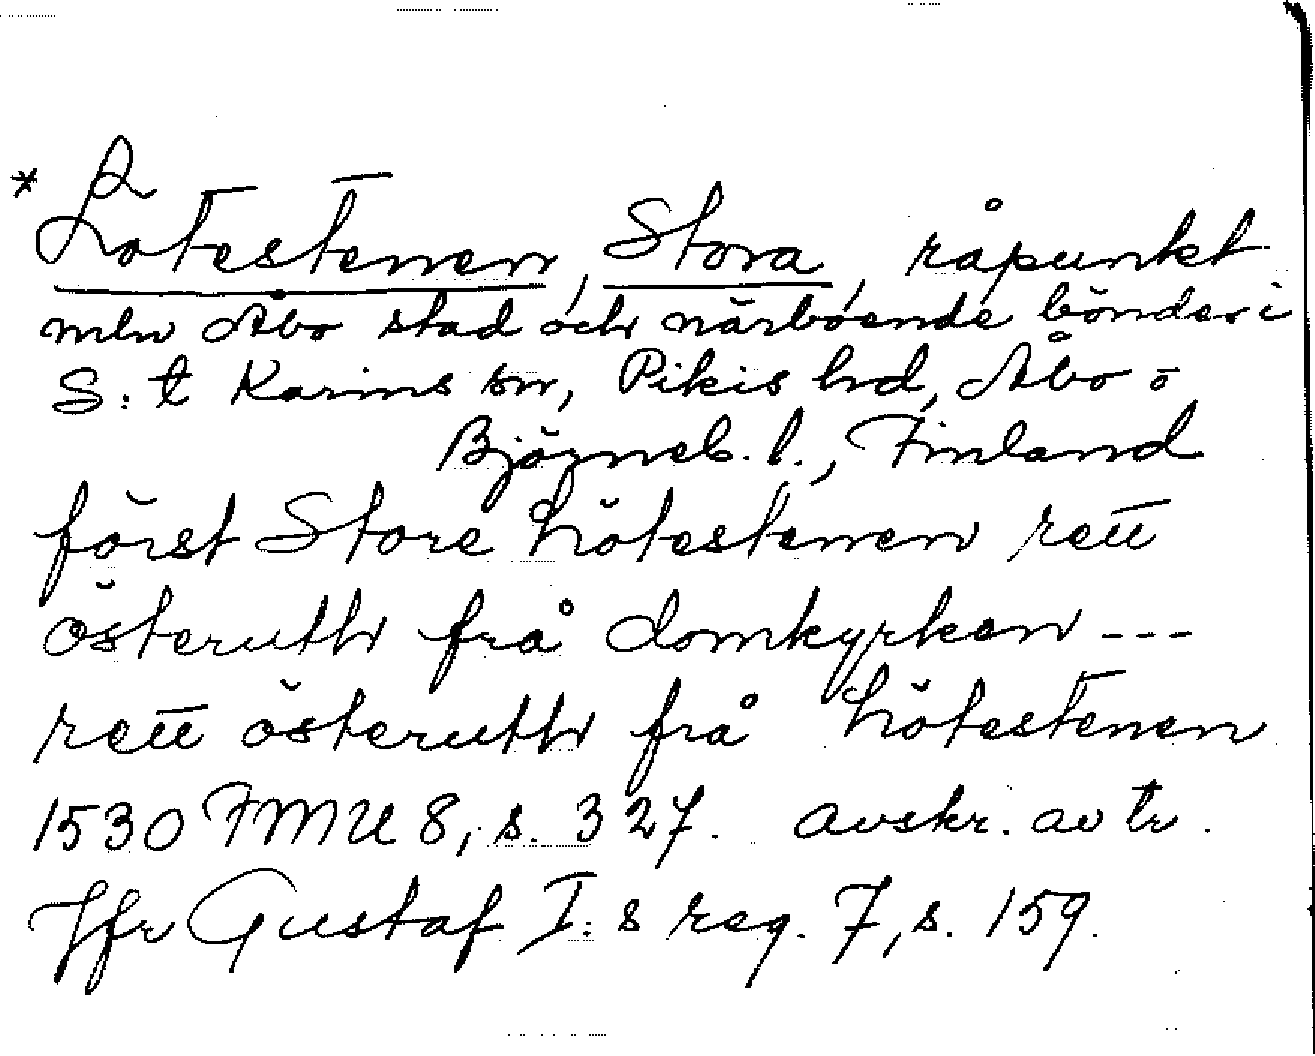 * Lötestenen, Stora, råpunkt
mln Åbo stad och närboende bönder i
S:t Karins sn, Pikis hd, Åbo o
Björneb. l., Finland
först Store Lötestenen rett
österuth frå domkyrken ---
rett österuth frå Lötestenen
1530 FMU 8, s. 327. avskr. av tr.
Jfr Gustaf I:s reg. 7, s. 159.